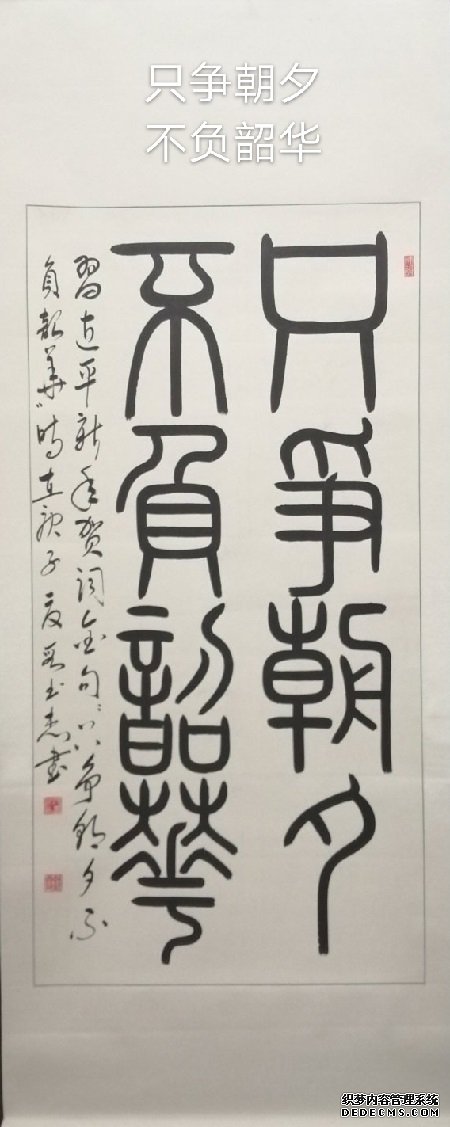 只争朝夕
不负韶华
只爭朝夕
不負韶華
習近平新年贺词金句：“只争朝夕不
負韶華”时在庚子夏书
织梦内容管理系统
DEDECMS.COM